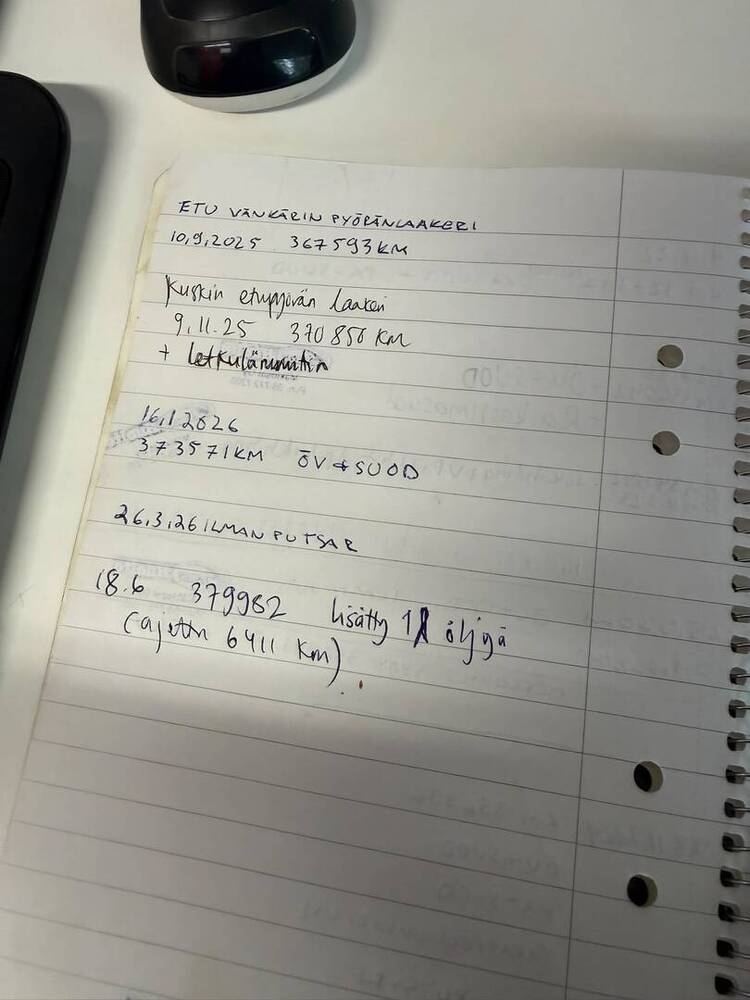 ETU VÄNKÄRIN PYÖRÄNLAAKERI
10,9,2025 367593KM
Kuskin etupyörän laakeri
9.11.25 370850 KM
+ Letkulämmitin
16,1 2026
373571KM ÖV + SUOD
26,3,26 ILMANPUTSAR
18.6 379982 Lisätty 1l öljyä
(ajettu 6411 km)